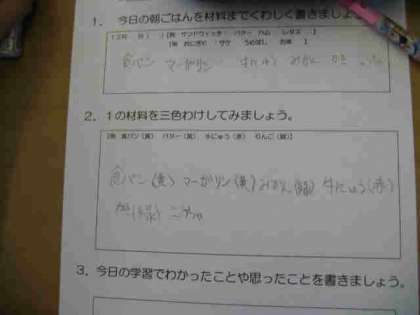 1. 今日の朝ごはんを材料までくわしく書きましょう。
[例 サンドウィッチ： パター ハム レタス ]
[例 おにぎり： サケ うめぼし お米 ]
食パン マーガリン 牛にゅう みかん かき
2. 1の材料を三色わけしてみましょう。
[例 食パン(黄) バター(黄) 牛にゅう(赤) りんご(緑)]
食パン(黄) マーガリン(黄) みかん(緑) 牛にゅう(赤)
かき(緑)
3. 今日の学習でわかったことや思ったことを書きましょう。